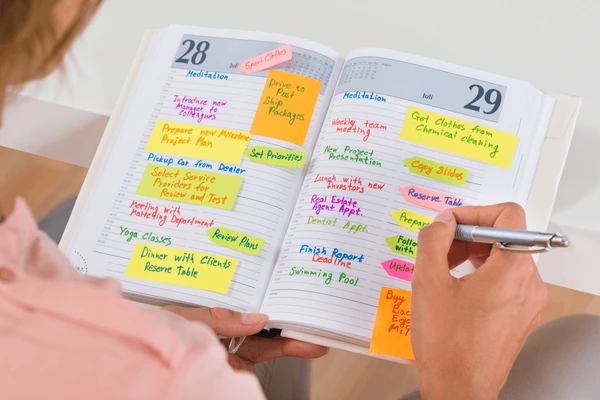 28
Sport Clothes
Meditation
Drive to
Post
Ship
Packages
Introduce new
Manager to
Colleagues
Prepare new Milestone
Project Plan
Set Priorities
Pickup Car from Dealer
Select Service
Providers for
Review and Test
Meeting with
Marketing Department
Yoga Classes
Review Plans
Dinner with Clients
Reserve Table
Juli
29
Meditation
Got Clothes from
Chemical cleaning
Weekly team
meeting
New Project
Presentation
Copy Slides
Lunch with new
Investors
Reserve Table
Real Estate
Agent Appt.
Prepare
Dentist Appt.
Follow
with
Finish Report
Deadline
Update
Swimming Pool
Buy